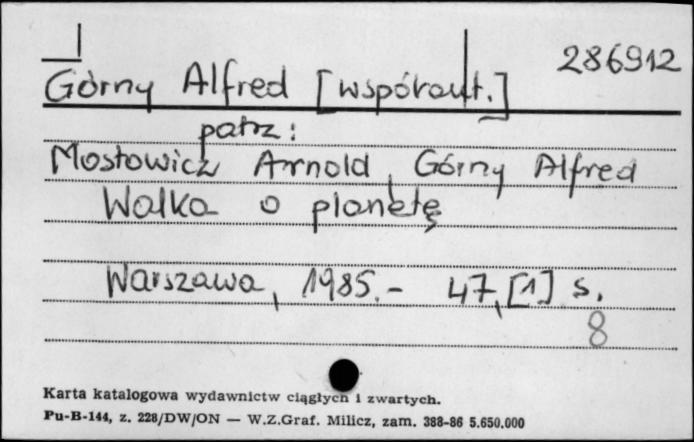 286912
Górny Alfred [współaut.]
patrz:
Mostowicz Arnold, Górny Alfred
Walka o planetę
Warszawa, 1985.- 47, [1] s.
8
Karta katalogowa wydawnictw ciągłych i zwartych.
Pu-B-144, z. 228/DW/ON — W.Z.Graf. Milicz, zam. 388-86 5.650.000